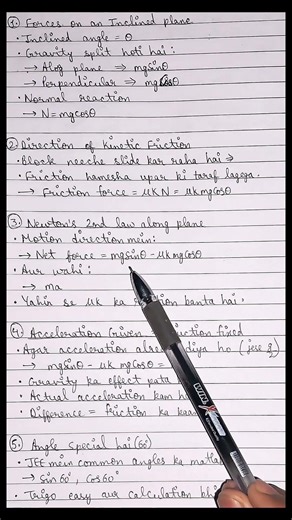 1. Forces on an Inclined plane
• Inclined angle = θ
• Gravity split hoti hai:
→ Along plane ⇒ mgsinθ
→ Perpendicular ⇒ mgcosθ
• Normal reaction
→ N = mgcosθ
2. Direction of Kinetic Friction
• Block neeche slide kar raha hai →
• Friction hamesha upar ki taraf lagega.
→ Friction force = μkN = μkmgcosθ
3. Newton's 2nd law along plane
• Motion direction mein:
→ Net force = mgsinθ - μkmgcosθ
• Aur wahi:
→ ma
• Yahin se μk ka banta hai.
4. Acceleration Given fixed
• Agar acceleration diya ho (jese
→ mgsinθ - μk mgcosθ =
• Gravity ka effect pata
• Actual acceleration kam
• Difference = friction ka
5. Angle Special hai (60°)
• JEE mein common angles ka
→ sin60°, cos60°
• Trigo easy aur calculation